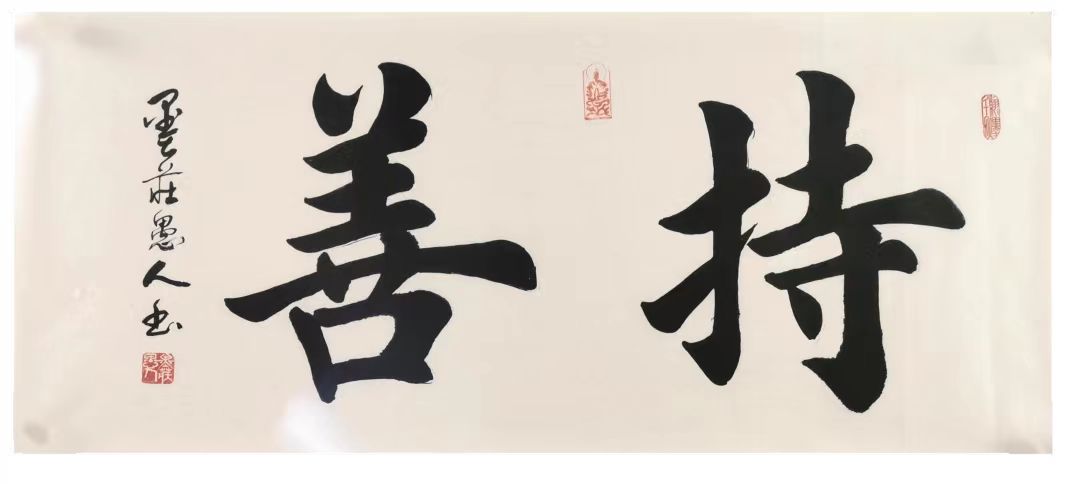 持善
墨莊愚人书